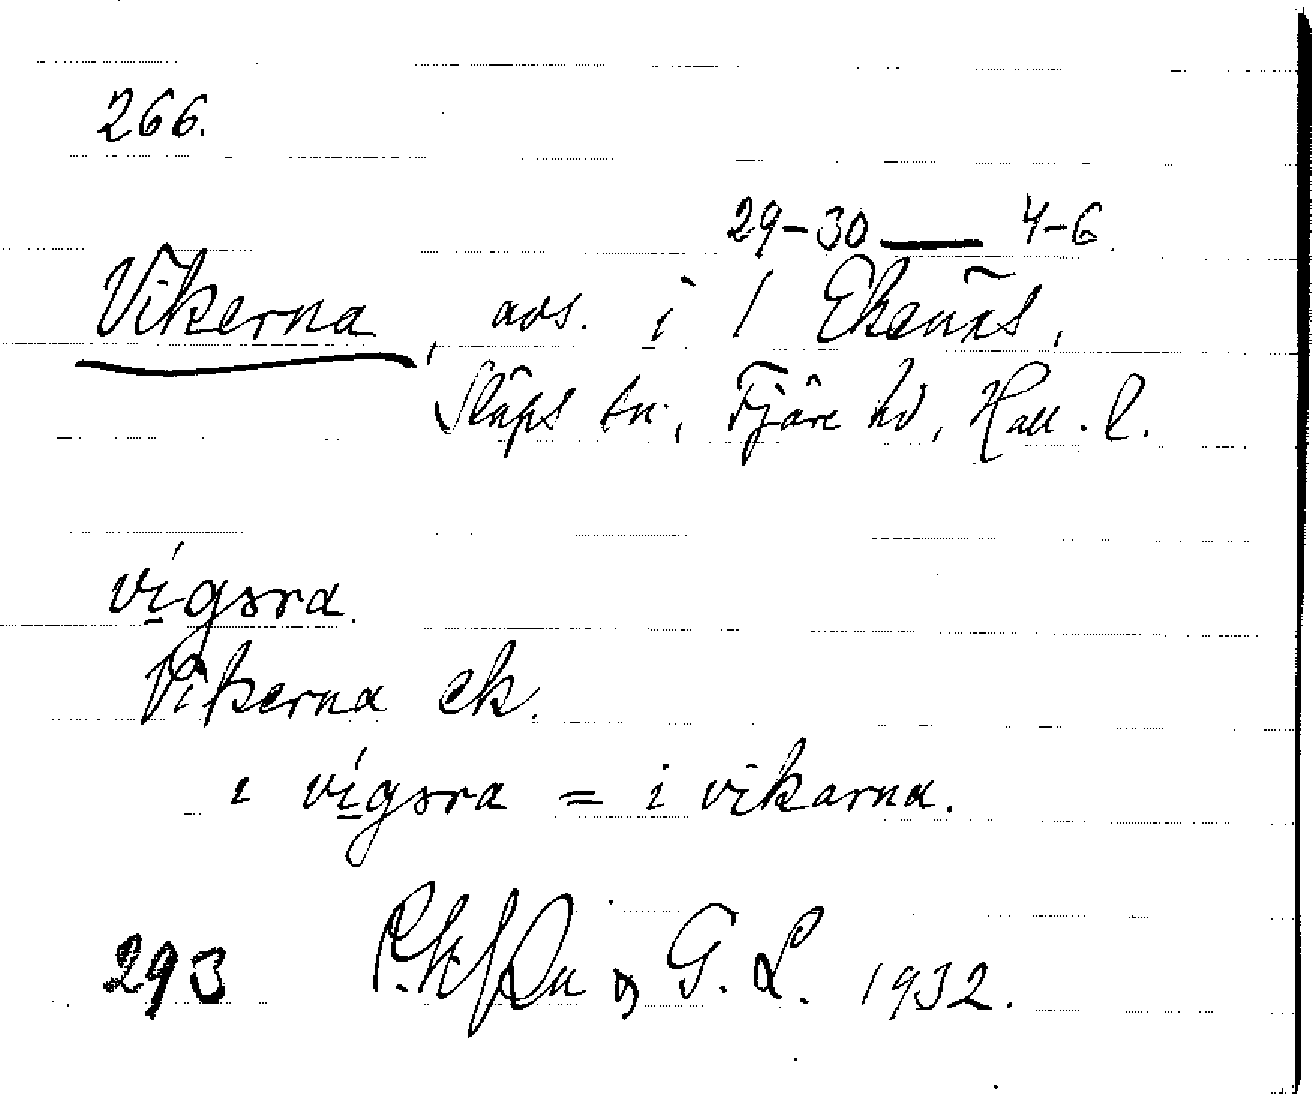 266.
29-30 — 4-6.
Vikerna, avs. i 1 Ekenäs,
Släps sn., Fjäre hd, Hall. l.
vígəra.
Vikerna ek.
i vígəra = i vikarna.
293 G. L. 1932.